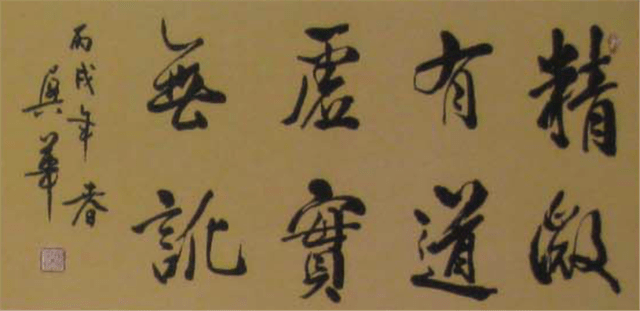 精微
有道
虛實
無訛
丙戌年春
吳華